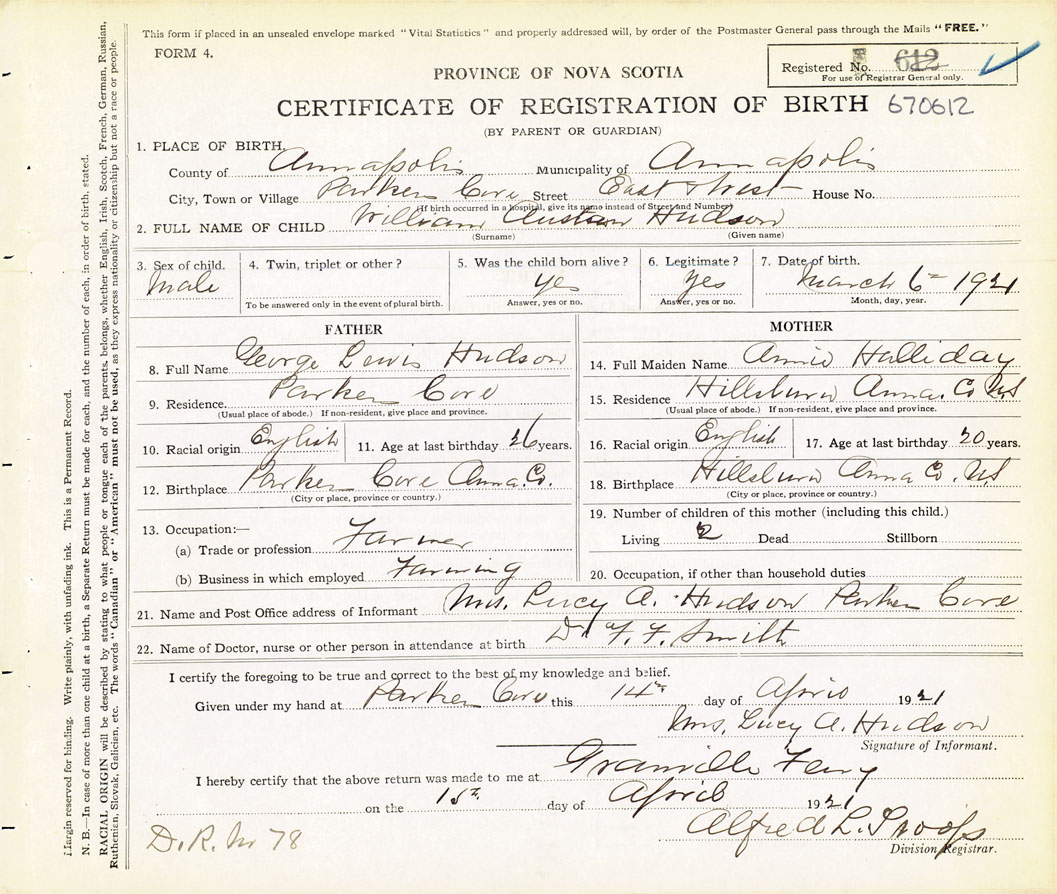 This form if placed in an unsealed envelope marked "Vital Statistics" and properly addressed will, by order of the Postmaster General pass through the Mails "FREE."
FORM 4.
Registered No. 612
For use of Registrar General only.
PROVINCE OF NOVA SCOTIA
CERTIFICATE OF REGISTRATION OF BIRTH 670612
(BY PARENT OR GUARDIAN)
1. PLACE OF BIRTH.
County of Annapolis Municipality of Annapolis
City, Town or Village Parkers Cove Street East & West House No.
(If birth occurred in a hospital, give its name instead of Street and Number)
2. FULL NAME OF CHILD William Hudson
(Surname) (Given name)
3. Sex of child. 4. Twin, triplet or other? 5. Was the child born alive? 6. Legitimate? 7. Date of birth.
Male yes yes March 6th 1921
To be answered only in the event of plural birth. Answer, yes or no. Answer, yes or no. Month, day, year.
FATHER
8. Full Name George Lewis Hudson
9. Residence. Parkers Cove
(Usual place of abode.) If non-resident, give place and province.
10. Racial origin English 11. Age at last birthday 26 years.
12. Birthplace Parkers Cove Anna. Co.
(City or place, province or country.)
13. Occupation:—
(a) Trade or profession Farmer
(b) Business in which employed Farming
MOTHER
14. Full Maiden Name Annie Halliday
15. Residence Hillsburn Anna. Co NS
(Usual place of abode.) If non-resident, give place and province.
16. Racial origin English 17. Age at last birthday 20 years.
18. Birthplace Hillsburn Anna Co. NS
(City or place, province or country.)
19. Number of children of this mother (including this child.)
Living 2 Dead Stillborn
20. Occupation, if other than household duties
21. Name and Post Office address of Informant Mrs. Lucy A. Hudson Parkers Cove
22. Name of Doctor, nurse or other person in attendance at birth Dr F. F. Smith
I certify the foregoing to be true and correct to the best of my knowledge and belief.
Given under my hand at Parkers Cove this 14th day of April 1921
Mrs. Lucy A. Hudson
Signature of Informant.
I hereby certify that the above return was made to me at Granville Ferry
on the 15th day of April 1921
Alfred L.
Division Registrar.
D.R. No 78
Margin reserved for binding. Write plainly, with unfading ink. This is a Permanent Record.
N. B.—In case of more than one child at a birth, a Separate Return must be made for each, and the number of each, in order of birth, stated.
RACIAL ORIGIN will be described by stating to what people or tongue each of the parents, belongs, whether English, Irish, Scotch, French, German, Russian,
Ruthenian, Slovak, Galician, etc. The words "Canadian" or "American" must not be used, as they express nationality or citizenship but not a race or people.